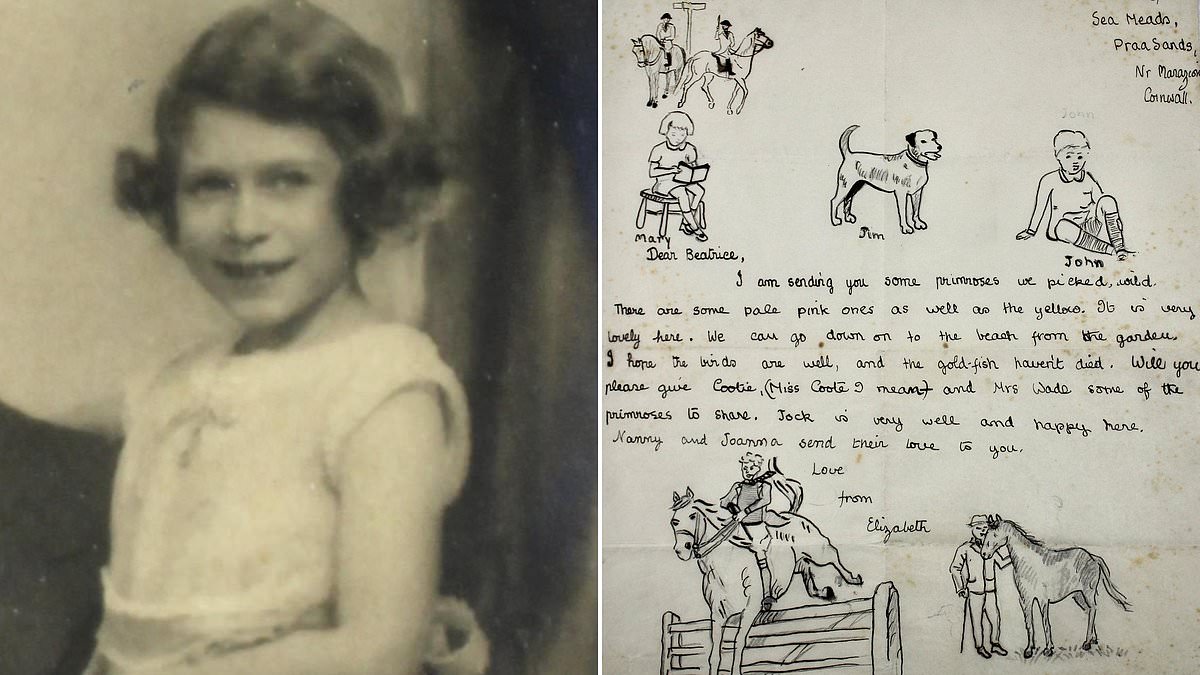 Sea Meads,
Praa Sands,
Nr Marazion
Cornwall.
John
Mary
Jim
John
Dear Beatrice,
I am sending you some primroses we picked, wild.
There are some pale pink ones as well as the yellow. It is very
lovely here. We can go down on to the beach from the garden.
I hope the birds are well, and the gold-fish haven't died. Will you
please give Cootie, (Miss Coote I mean) and Mrs Wade some of the
primroses to share. Jock is very well and happy here.
Nanny and Joanna send their love to you.
Love
from
Elizabeth